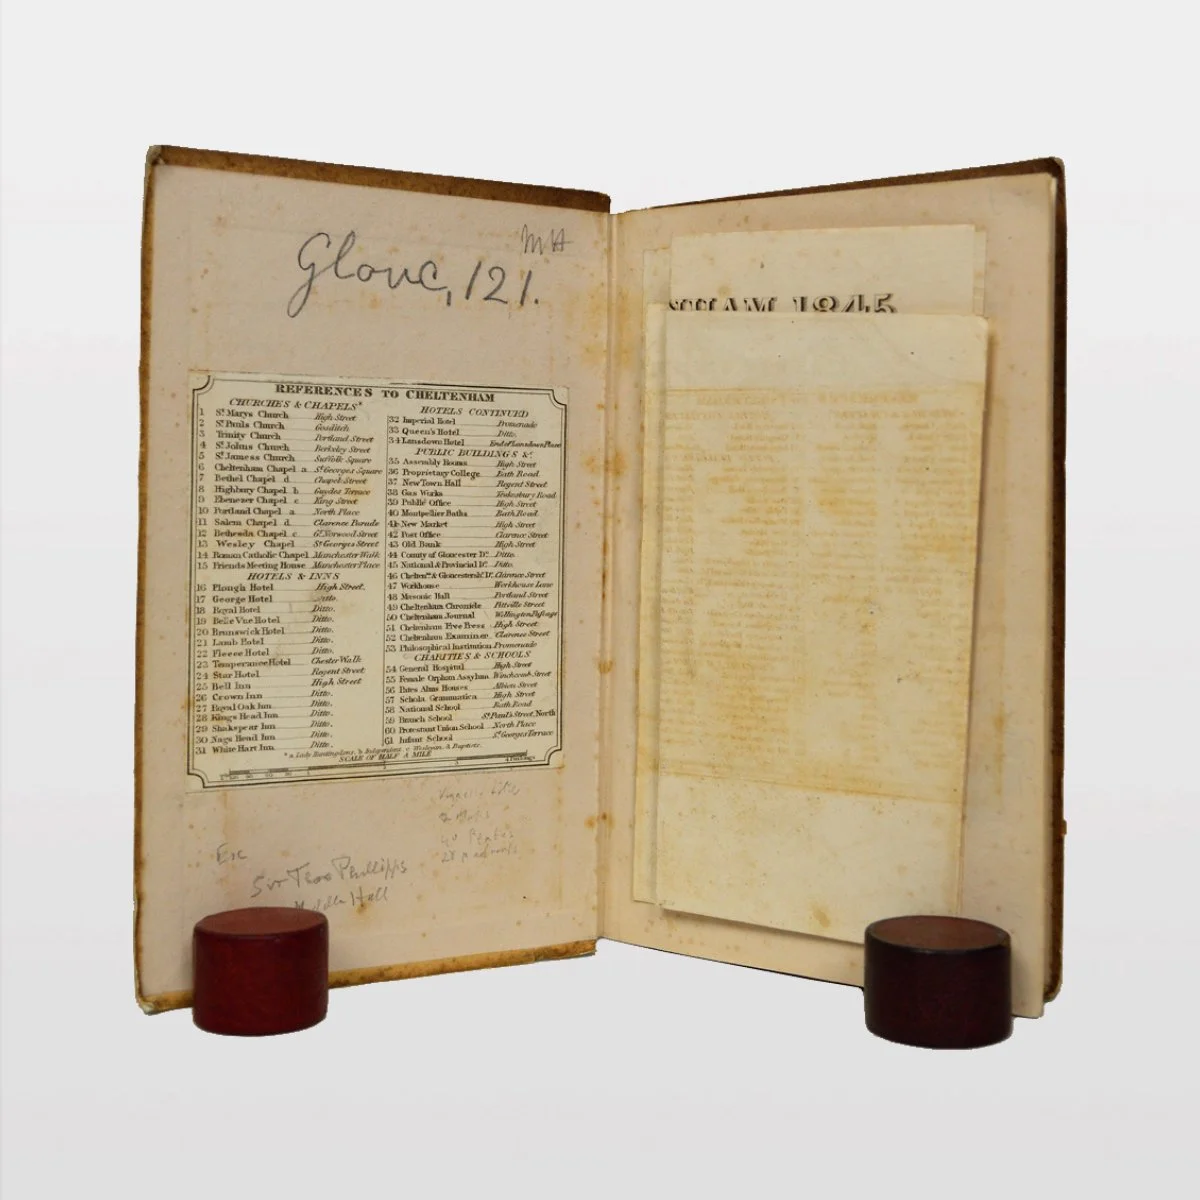 MH
Glouc, 121.
REFERENCES TO CHELTENHAM
CHURCHES & CHAPELS*
1 St. Marys Church High Street
2 St. Pauls Church Goaditch
3 Trinity Church Portland Street
4 St. Johns Church Berkeley Street
5 St. Jamess Church Suffolk Square
6 Cheltenham Chapel a St. Georges Square
7 Bethel Chapel d Chapel Street
8 Highbury Chapel b Guydes Terrace
9 Ebenezer Chapel c King Street
10 Portland Chapel a North Place
11 Salem Chapel d Clarence Parade
12 Bethesda Chapel c Gt. Norwood Street
13 Wesley Chapel St. Georges Street
14 Roman Catholic Chapel Manchester Walk
15 Friends Meeting House Manchester Place
HOTELS & INNS
16 Plough Hotel High Street.
17 George Hotel Ditto.
18 Royal Hotel Ditto.
19 Belle Vue Hotel Ditto.
20 Brunswick Hotel Ditto.
21 Lamb Hotel Ditto.
22 Fleece Hotel Ditto.
23 Temperance Hotel Chester Walk
24 Star Hotel Regent Street
25 Bell Inn High Street
26 Crown Inn Ditto.
27 Royal Oak Inn Ditto.
28 Kings Head Inn Ditto.
29 Shakspear Inn Ditto.
30 Nags Head Inn Ditto.
31 White Hart Inn Ditto.
HOTELS CONTINUED
32 Imperial Hotel Promenade
33 Queen's Hotel Ditto.
34 Lansdown Hotel End of Lansdown Place
PUBLIC BUILDINGS &c.
35 Assembly Rooms High Street
36 Proprietary College Bath Road
37 New Town Hall Regent Street
38 Gas Works Tewkesbury Road
39 Public Office High Street
40 Montpellier Baths Bath Road
41 New Market High Street
42 Post Office Clarence Street
43 Old Bank High Street
44 County of Gloucester Do. Ditto.
45 National & Provincial Do. Ditto.
46 Cheltenm. & Gloucestersh. Do. Clarence Street
47 Workhouse Workhouse Lane
48 Masonic Hall Portland Street
49 Cheltenham Chronicle Pittville Street
50 Cheltenham Journal Wellington Passage
51 Cheltenham Free Press High Street
52 Cheltenham Examiner Clarence Street
53 Philosophical Institution Promenade
CHARITIES & SCHOOLS
54 General Hospital High Street
55 Female Orphan Assylum Winchcomb Street
56 Pates Alms Houses Albion Street
57 Schola Grammatica High Street
58 National School Bath Road
59 Branch School St. Paul's Street, North
60 Protestant Union School North Place
61 Infant School St. Georges Terrace
* a Lady Huntingdons, b Independent, c Wesleyan, d Baptists.
SCALE OF HALF A MILE
4 Furlongs
Sir Thos Phillipps
Middle Hill
HAM 1845